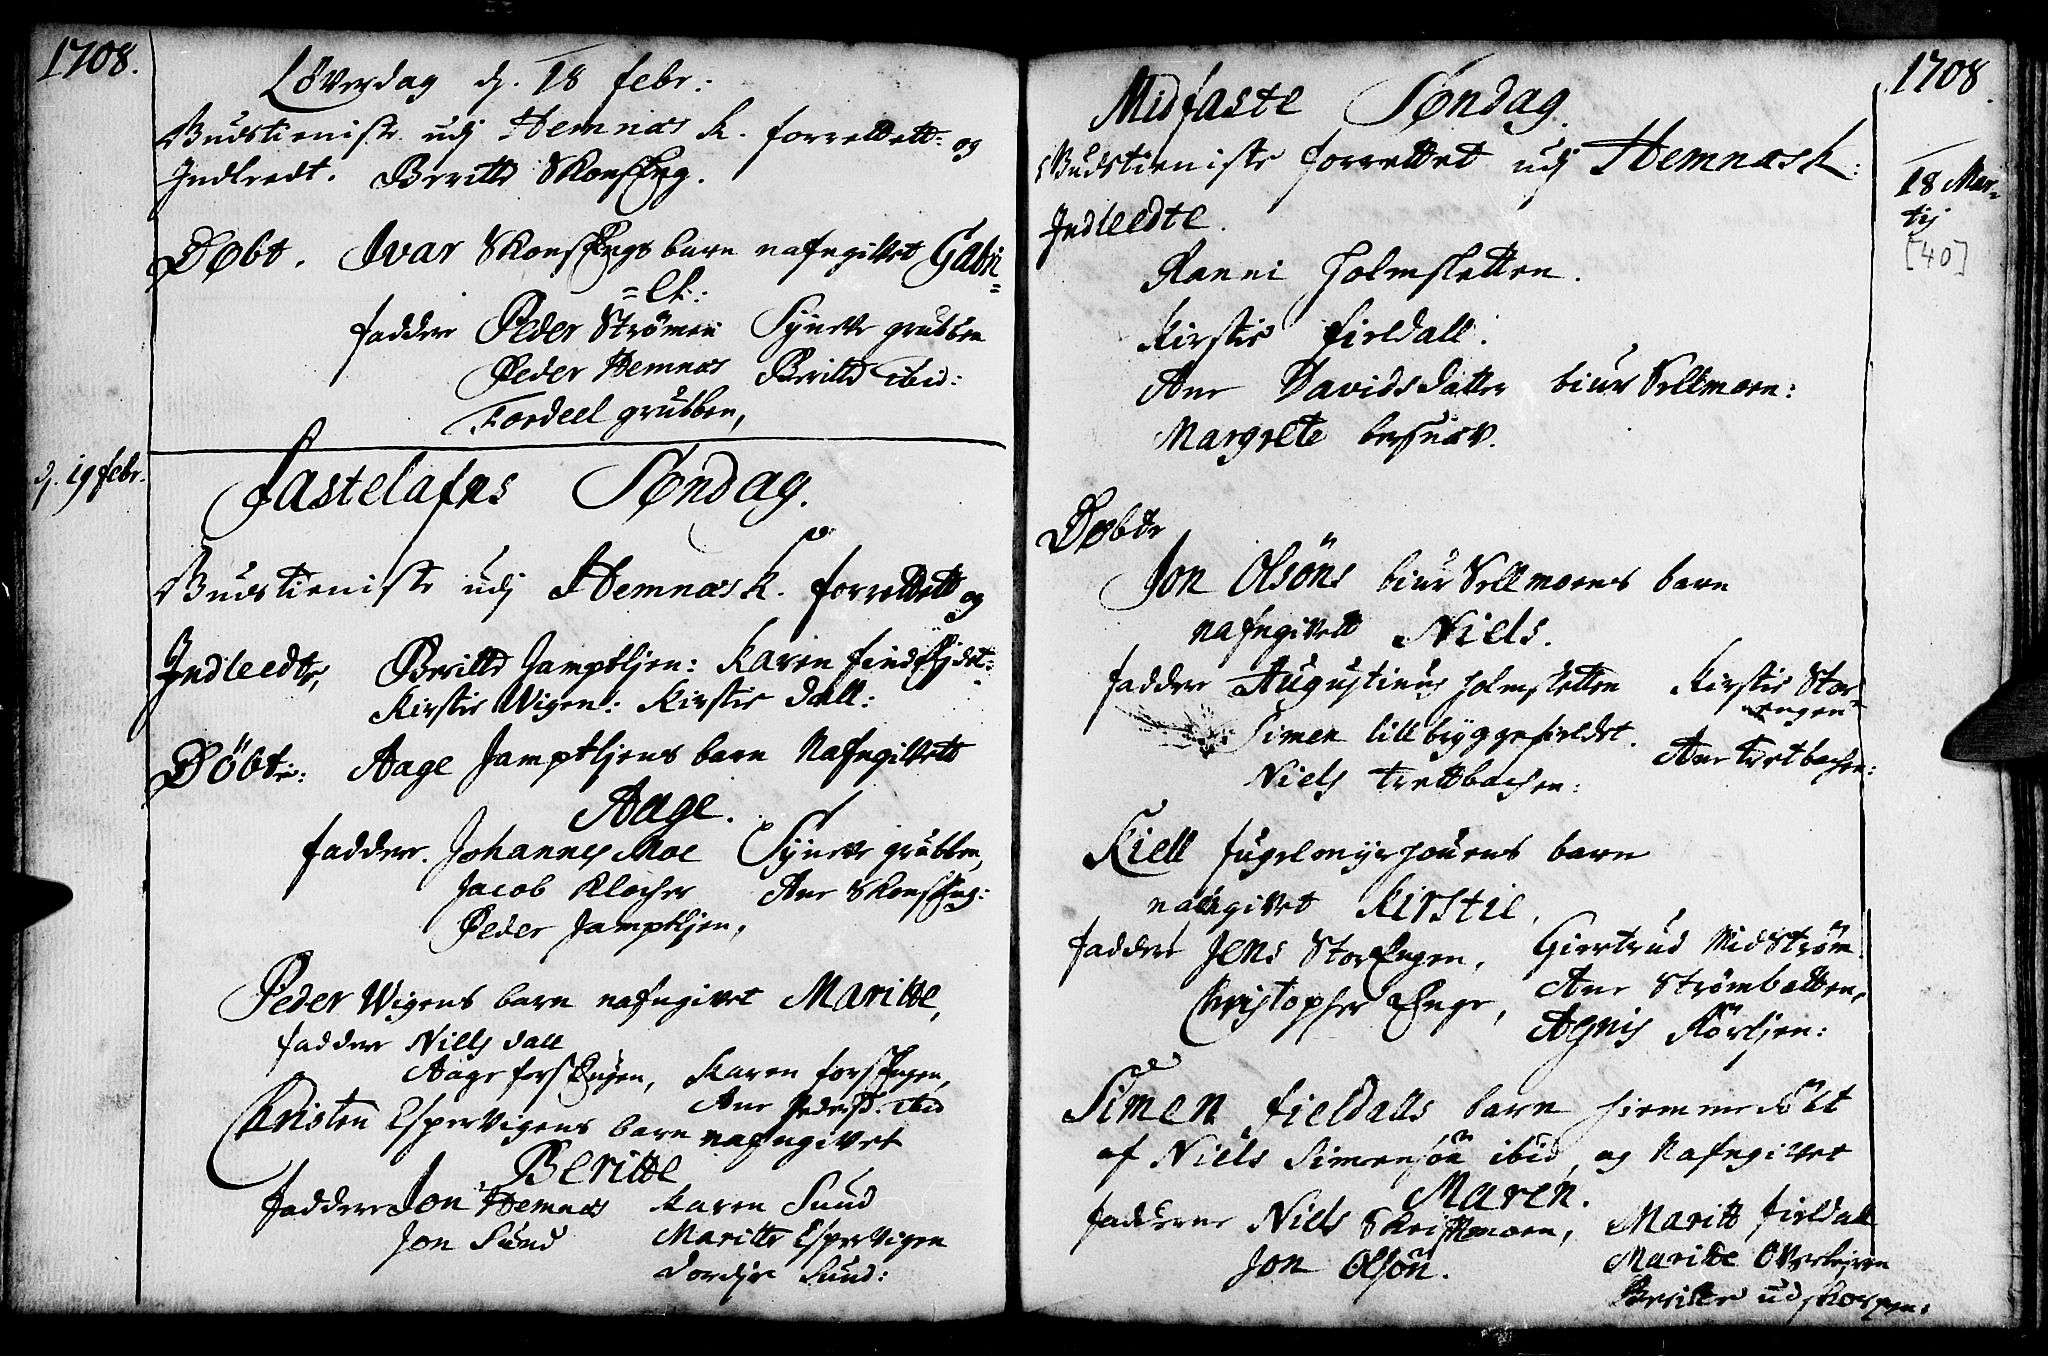 1708.
Löverdag d. 18 febr:
Gudstieniste udj Hemnæs K. forrettett: og
Indledt. Beritte SkonsEng.
Døbt. Ivar SkonsEngs barn nafngifvet Gabri=
=el:
faddere Peder Strömen Syneve grubben
Peder Hemnæs Beritte ibid:
Tordeel grubben,
d. 19 febr.
Fastelafns Søndag.
Gudstieniste udj Hemnæs K. forrettett og
Indleedte, Beritte Jamptljen: Karen
Kirstie Wigen: Kirstie Dall:
Döbte: Aage Jamptljens barn Nafngifvett
Aage.
faddere. Johannes Moe Syneve grubben,
Jacob Klocher Ane SkonsEng:
Peder Jamptljen,
Peder Wigens barn nafngivet Maritte,
faddere Niels Dall
Aage forsEngen, Karen forsEngen,
Ane Pedersd. ibid
Christen Espervigens barn nafngivet
Beritte
faddere Jon Hemnæs Karen Sund
Jon Sund Maritte Espervigen
Dordje Sund:
1708.
18 Mar=
tij
[40]
Midfaste Søndag.
Gudstieniste forrettet udj Hemnæs K:
Indleedte.
Ranni Holmsletten.
Kirstie fieldall.
Ane Davidsdatter biur Sellmoen:
Margrete
Døbte
Jon Olsöns biur Sellmoens barn
nafngivett Niels.
faddere Augustinus Holmsletten Kirstie Stor
engen
Simen lillbryggefieldet. Ane Trettbachen:
Niels Trettbachen:
Kiell fuglemyrhouens barn
nafngivet Kirstie,
faddere Jens StorEngen, Giertrud MidStröm:
Christopher Enge, Ane Strömbotten,
Agnis Rörljen:
Simen fieldalls barn hiemmedöbt
af Niels Simensön ibid, og Nafngivet
Maren.
fadderne Niels Skrifttmoen, Maritt fieldall
Jon Olsön. Maritte Overlejren
Beritte udskorpen: